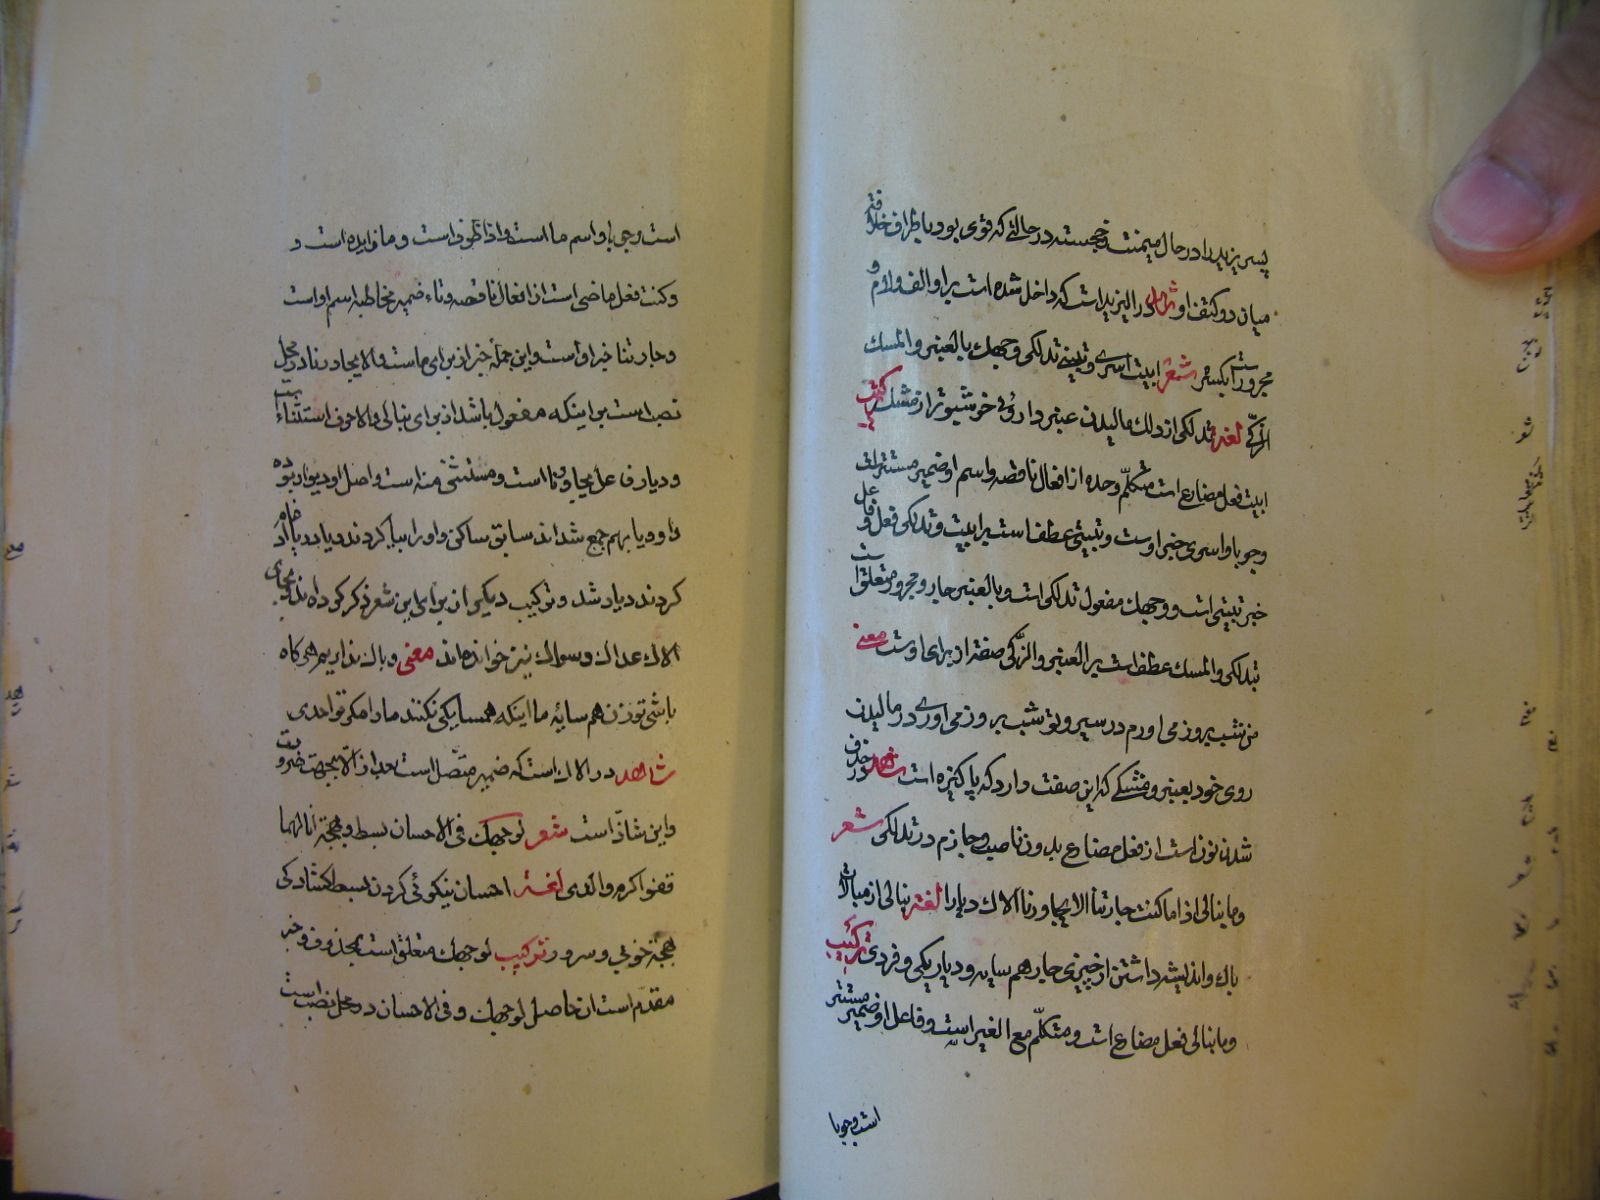 پسر یزید را در حال میمنت و خجسته در حالتی که قوی بود با طراف خلافة
میان دو کتف او شاهد در الیزید است که داخل شده است بر او الف و لام و
مجرور است بکسر شعر ابیت اسری و تبیتی تدلکی وجهک بالعنبر والمسک
الزکی لغة تدلکی از دلک مالیدن عنبر داروئی خوشبوتر از مشک ترکیب
ابیت فعل مضارع است متکلم وحده از افعال ناقصه و اسم او ضمیر مستتر است
وجوبا و اسری خبر اوست و تبیتی عطف است بر ابیت و تدلکی فعل و فاعل
خبر تبیتی است و وجهک مفعول تدلکی است و بالعنبر جار و مجرور متعلق است
بتدلکی والمسک عطف است بر العنبر والزکی صفة از برای اوست معنی
من شب بروز می اورم در سیر و تو شب بروز می اوری در مالیدن
روی خود بعنبر و مشکی که این صفت دارد که پاکیزه است شاهد در حذف
شدن نون است از فعل مضارع بدون ناصب و جازم در تدلکی شعر
وما نبالی اذا ما کنت جارتنا الا یجاورنا الاک دیارا لغة نبالی از مبالات
باک و اندیشه داشتن از چیزی جار هم سایه و دیار یکی و فردی ترکیب
وما نبالی فعل مضارع است و متکلم مع الغیر است و فاعل او ضمیر مستتر
است وجوبا
است وجوبا و اسم ما است و اذا ظرف است و ما زایده است و
و کنت فعل ماضی است از افعال ناقصه و تاء ضمیر مخاطبه اسم اوست
و جارتنا خبر اوست و این جمله خبر از برای ماست و الا یجاورنا در محل
نصب است بر اینکه مفعول باشد از برای نبالی و الا حرف استثناء است
و دیار فاعل یجاورنا است و مستثنی منه است و اصل او دیوار بوده
واو و یا بهم جمع شدند سابق ساکن واو را بیا کردند و یا در یا ادغام
کردند دیار شد و ترکیب دیگر از برای این شعر ذکر کرده اند و بجای
الاک عداک و سواک نیز خوانده اند معنی و باک نداریم هر گاه
باشی تو زن هم سایه ما اینکه همسایگی نکند ما را مگر تو احدی
شاهد در الاک است که ضمیر متصل است بعد از الا بجهت ضرورت
و این شاذ است شعر لوجهک فی الاحسان بسط و بهجة انالهما
قفو اکرم والدی لغة احسان نیکوئی کردن بسط گشادگی
بهجة خوبی و سرور ترکیب لوجهک متعلق است بمحذوف و خبر
مقدم است ان حاصل لوجهک و فی الاحسان در محل نصب است